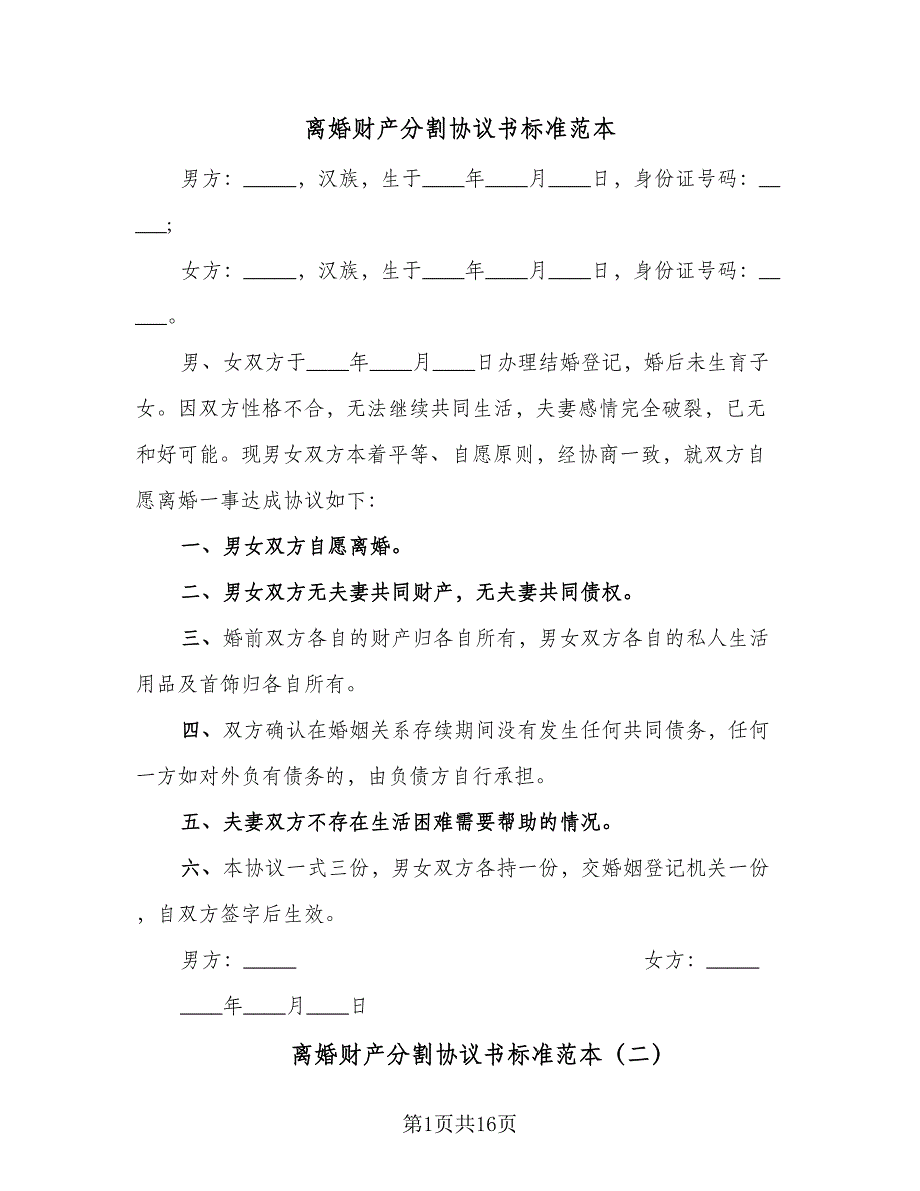 离婚财产分割协议书标准范本
男方：_____，汉族，生于____年____月____日，身份证号码：__
___;
女方：_____，汉族，生于____年____月____日，身份证号码：__
___。
男、女双方于____年____月____日办理结婚登记，婚后未生育子
女。因双方性格不合，无法继续共同生活，夫妻感情完全破裂，已无
和好可能。现男女双方本着平等、自愿原则，经协商一致，就双方自
愿离婚一事达成协议如下：
一、男女双方自愿离婚。
二、男女双方无夫妻共同财产，无夫妻共同债权。
三、婚前双方各自的财产归各自所有，男女双方各自的私人生活
用品及首饰归各自所有。
四、双方确认在婚姻关系存续期间没有发生任何共同债务，任何
一方如对外负有债务的，由负债方自行承担。
五、夫妻双方不存在生活困难需要帮助的情况。
六、本协议一式三份，男女双方各持一份，交婚姻登记机关一份
，自双方签字后生效。
男方：_____ 女方：_____
____年____月____日
离婚财产分割协议书标准范本（二）
第1页共16页